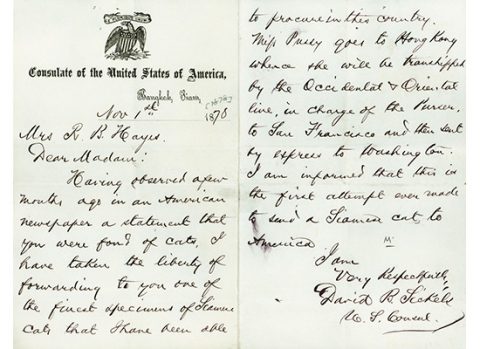 Consulate of the United States of America,
Bangkok, Siam,
Nov 1st 1878
Mrs R. B. Hayes.
Dear Madam:
Having observed a few
months ago in an American
newspaper a statement that
you were fond of cats, I
have taken the liberty of
forwarding to you one of
the finest specimens of Siamese
cats that I have been able
to procure in this country.
Miss Pussy goes to Hong Kong
whence she will be transhipped
by the Occidental & Oriental
line, in charge of the Purser,
to San Francisco and then sent
by express to Washington.
I am informed that this is
the first attempt ever made
to send a Siamese cat to
America
I am
Very Respectfully,
David B. Sickels
U. S. Consul.